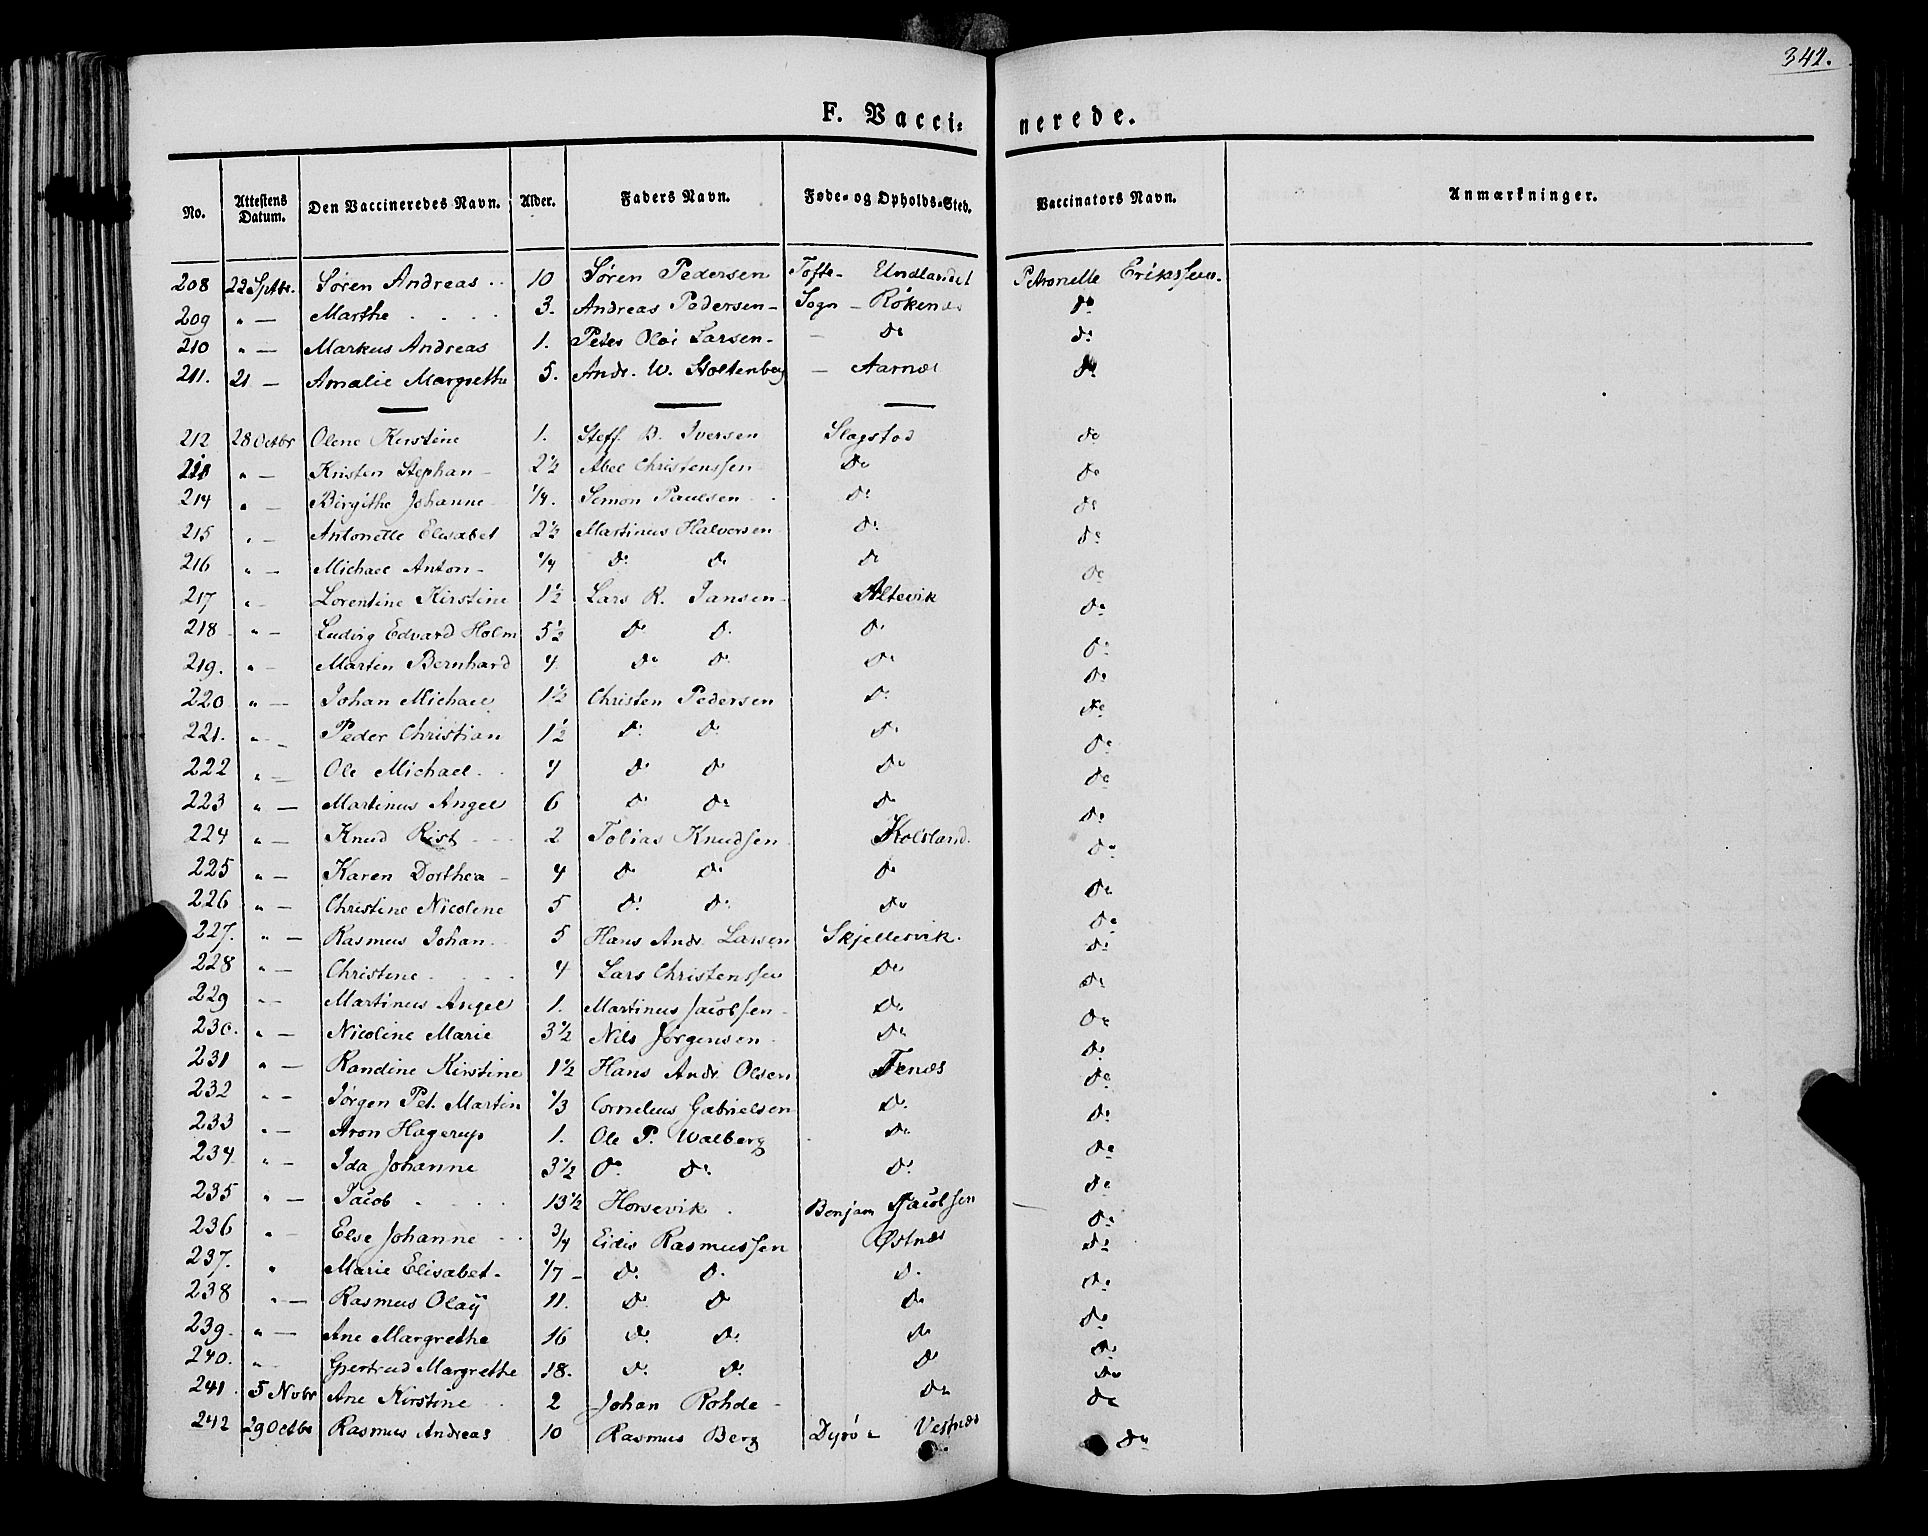 342.
F. Vacci= nerede.
No. Attestens Datum. Den Vaccineredes Navn. Alder. Faders Navn. Føde- og Opholds-Sted. Vaccinators Navn. Anmærkninger.
208 22 Septbr. Søren Andreas 10 Søren Pedersen Tofte- Undlandet Petronelle Erikssen.
209 " — Marthe 3. Andreas Pedersen Sogn - Rökenes do
210 " — Markus Andreas 1. Peter Larsen — do do
211. 21 — Amalie Margrethe 5. Andr. W. Stoltenberg — Aarnæs do
212 28 Octbr Olene Kirstine 1. Steff. B. Iversen Slagstad do
213 " — Kristen Stephan 2½ Abel Christenssen do do
214 " — Birgithe Johanne ¼. Simon Paulsen do do
215 " — Antonette Elisabet 2½ Martinus Halversen do do
216 " — Michael Anton ¼ do do do do
217 " — Lorentine Kirstine 1½ Lars R. Jansen Altevik do
218 " — Ludvig Edvard Holm 5½ do do do do
219. " — Marten Bernhard 4 do do do do
220 " — Johan Michael 1½ Christen Pedersen do do
221. " — Peder Christian 1½ do do do do
222 " — Ole Michael 4 do do do do
223 " — Martinus Angel 6 do do do do
224 " — Knud Rist 2 Tobias Knudsen Kolsland. do
225 " — Karen Dorthea 4 do do do do
226 " — Christine Nicolene 5 do do do do
227. " — Rasmus Johan 5 Hans Andr. Larsen Skjellesvik. do
228 " — Christine 4 Lars Christenssen do do
229 " — Martinus Angel 1. Martinus Jacobsen do do
230. " — Nicoline Marie 3½ Nils Jörgensen do do
231 " — Randine Kirstine 1½ Hans Andr. Olsen Fenæs do
232 " — Jörgen Pet. Martin ⅓ Cornelius Gabrielsen do do
233 " — Aron Hagerup 1. Ole P. Walberg do do
234 " — Ida Johanne 3½ do do do do
235 " — Jacob 13½ Horsevik Benjam Jacobsen do
236 " — Else Johanne ¾ Eidis Rasmussen Østnæs do
237. " Marie Elisabet 1/7 do do do do
238 " — Rasmus Olaÿ 11. do do do do
239. " — Ane Margrethe 16 do do do do
240. " — Gjertrud Margrethe 18. do do do do
241. 5 Novbr Ane Kirstine 2 Johan Rohde do do
242 29 Octbr Rasmus Andreas 10 Rasmus Berg Dyrö - Vestnæs do